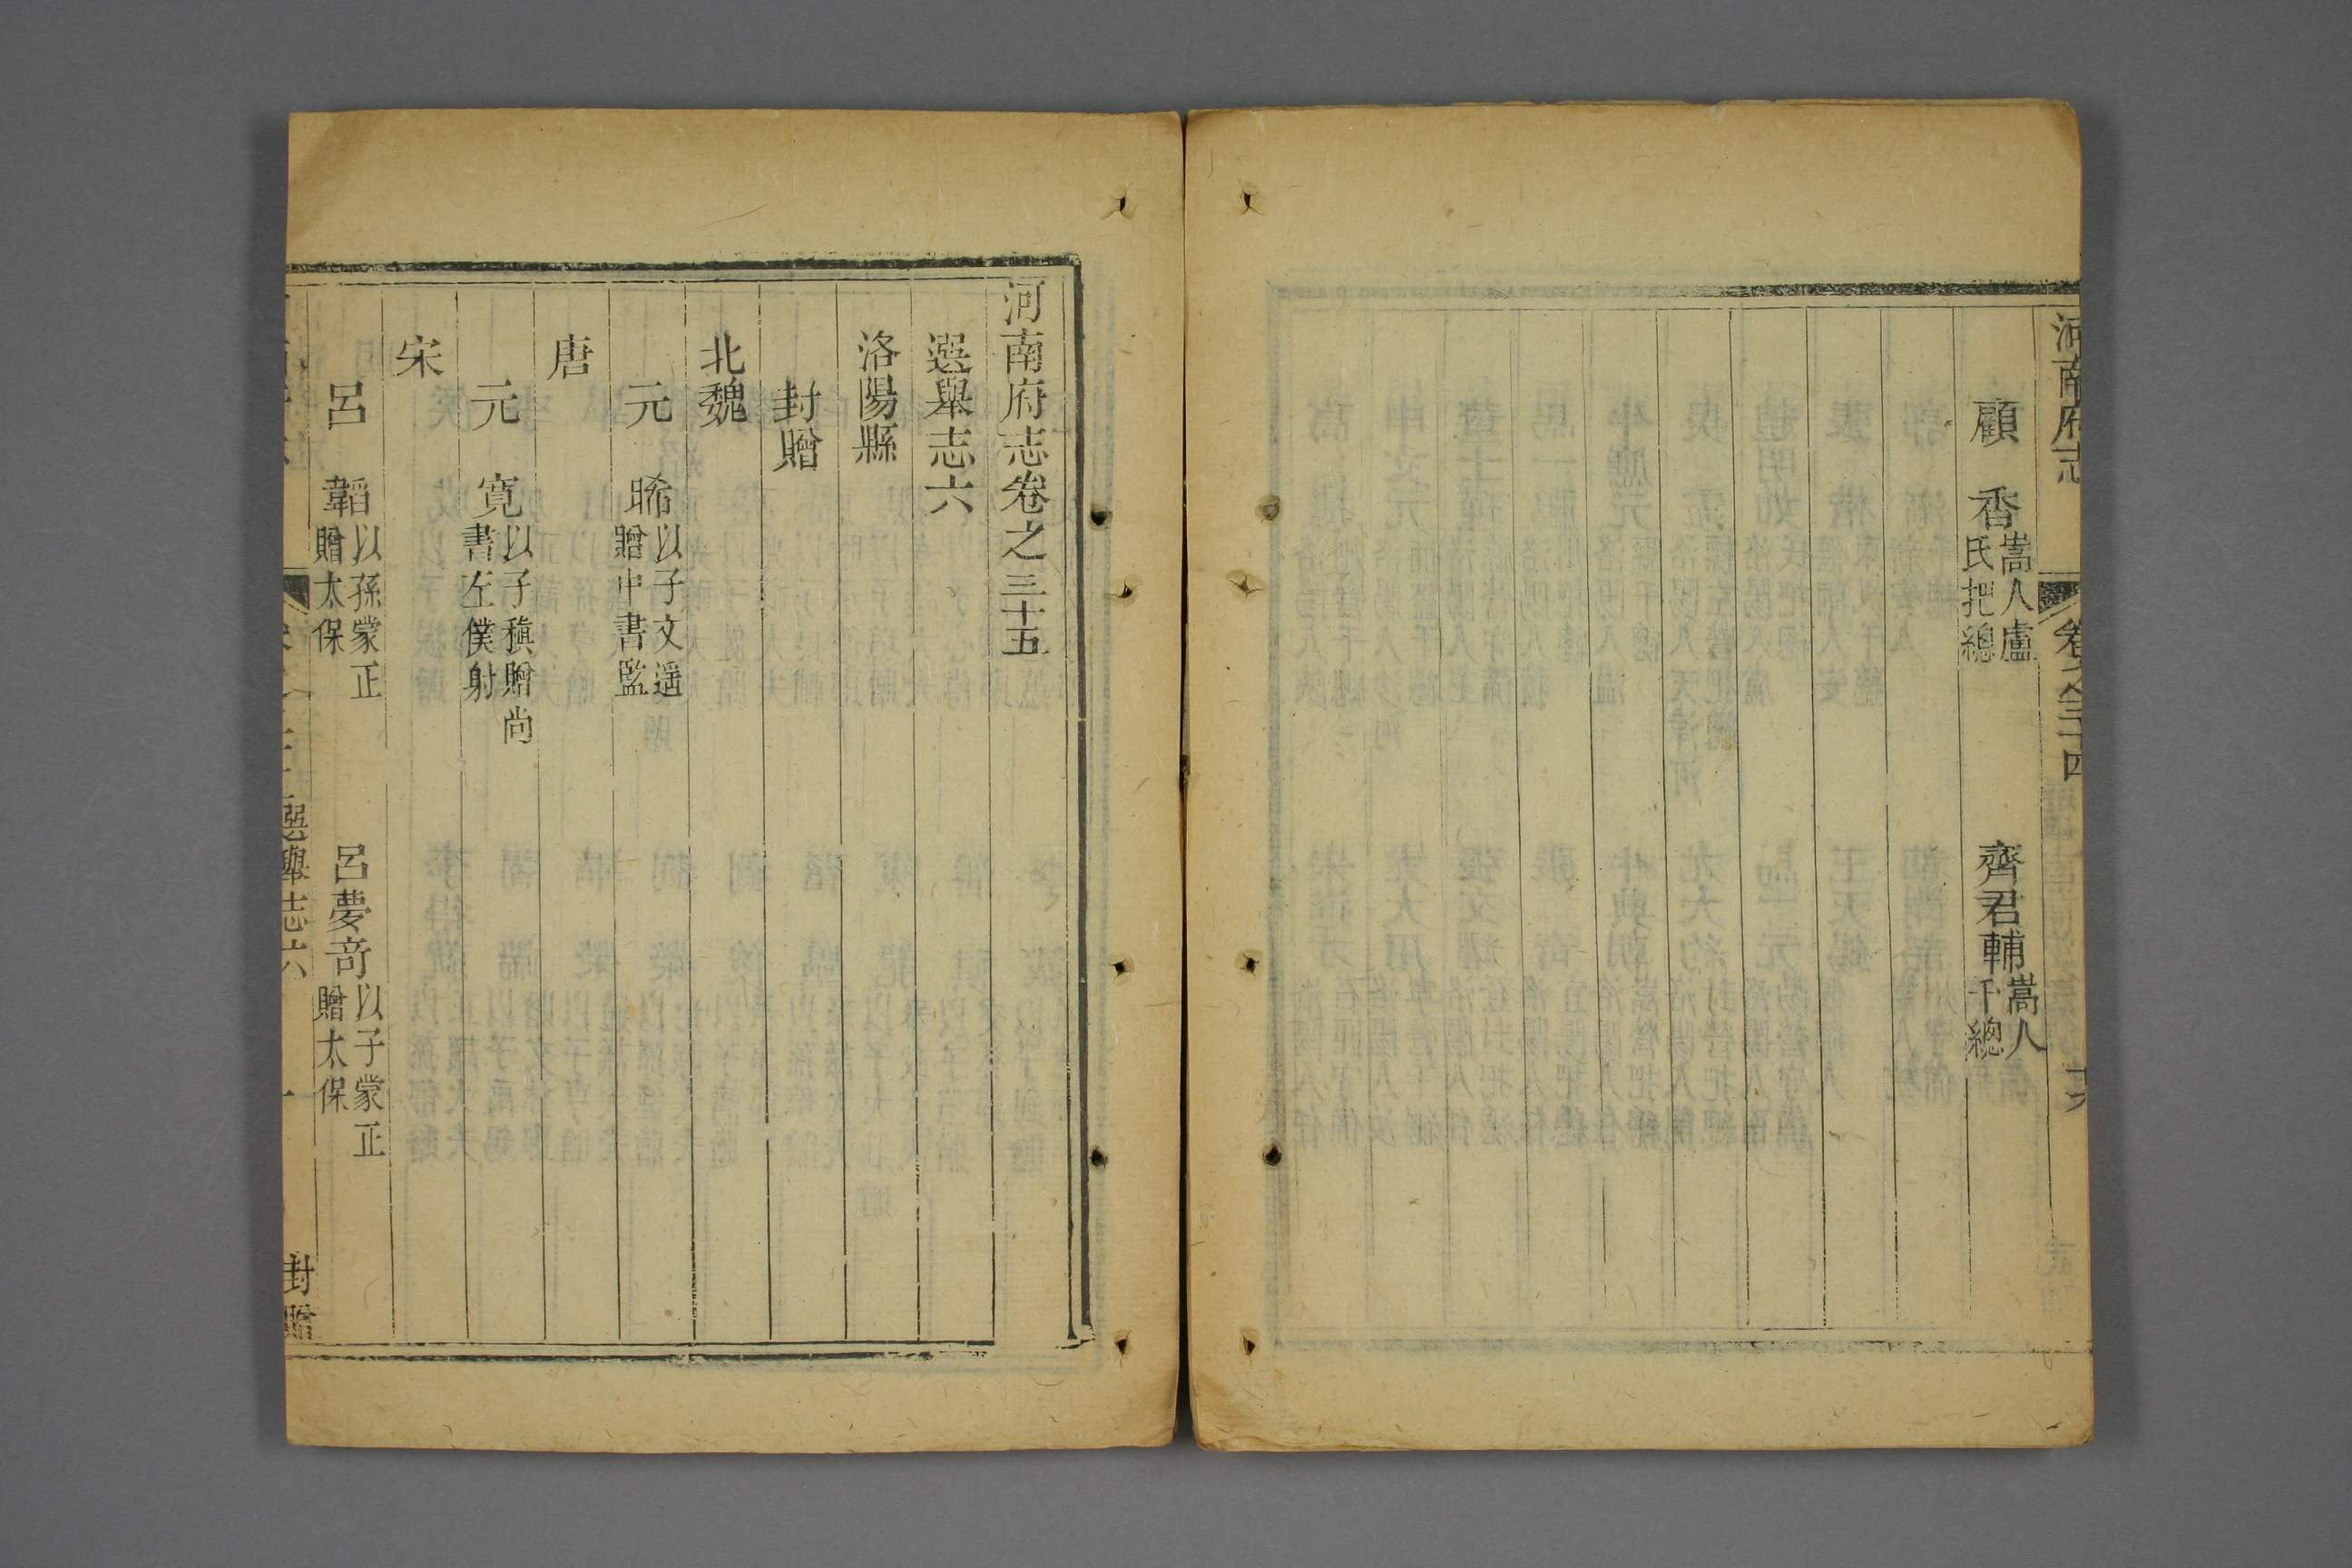 河南府志
卷之三十四
顧 香嵩人盧氏把總
齊君輔嵩人千總
河南府志卷之三十五
選舉志六
洛陽縣
封贈
北魏
元 晞以子文遥贈中書監
唐
元 寛以子稹贈尚書左僕射
宋
呂 韜以孫蒙正贈太保
呂夢奇以子蒙正贈太保
選舉志六
一
封贈